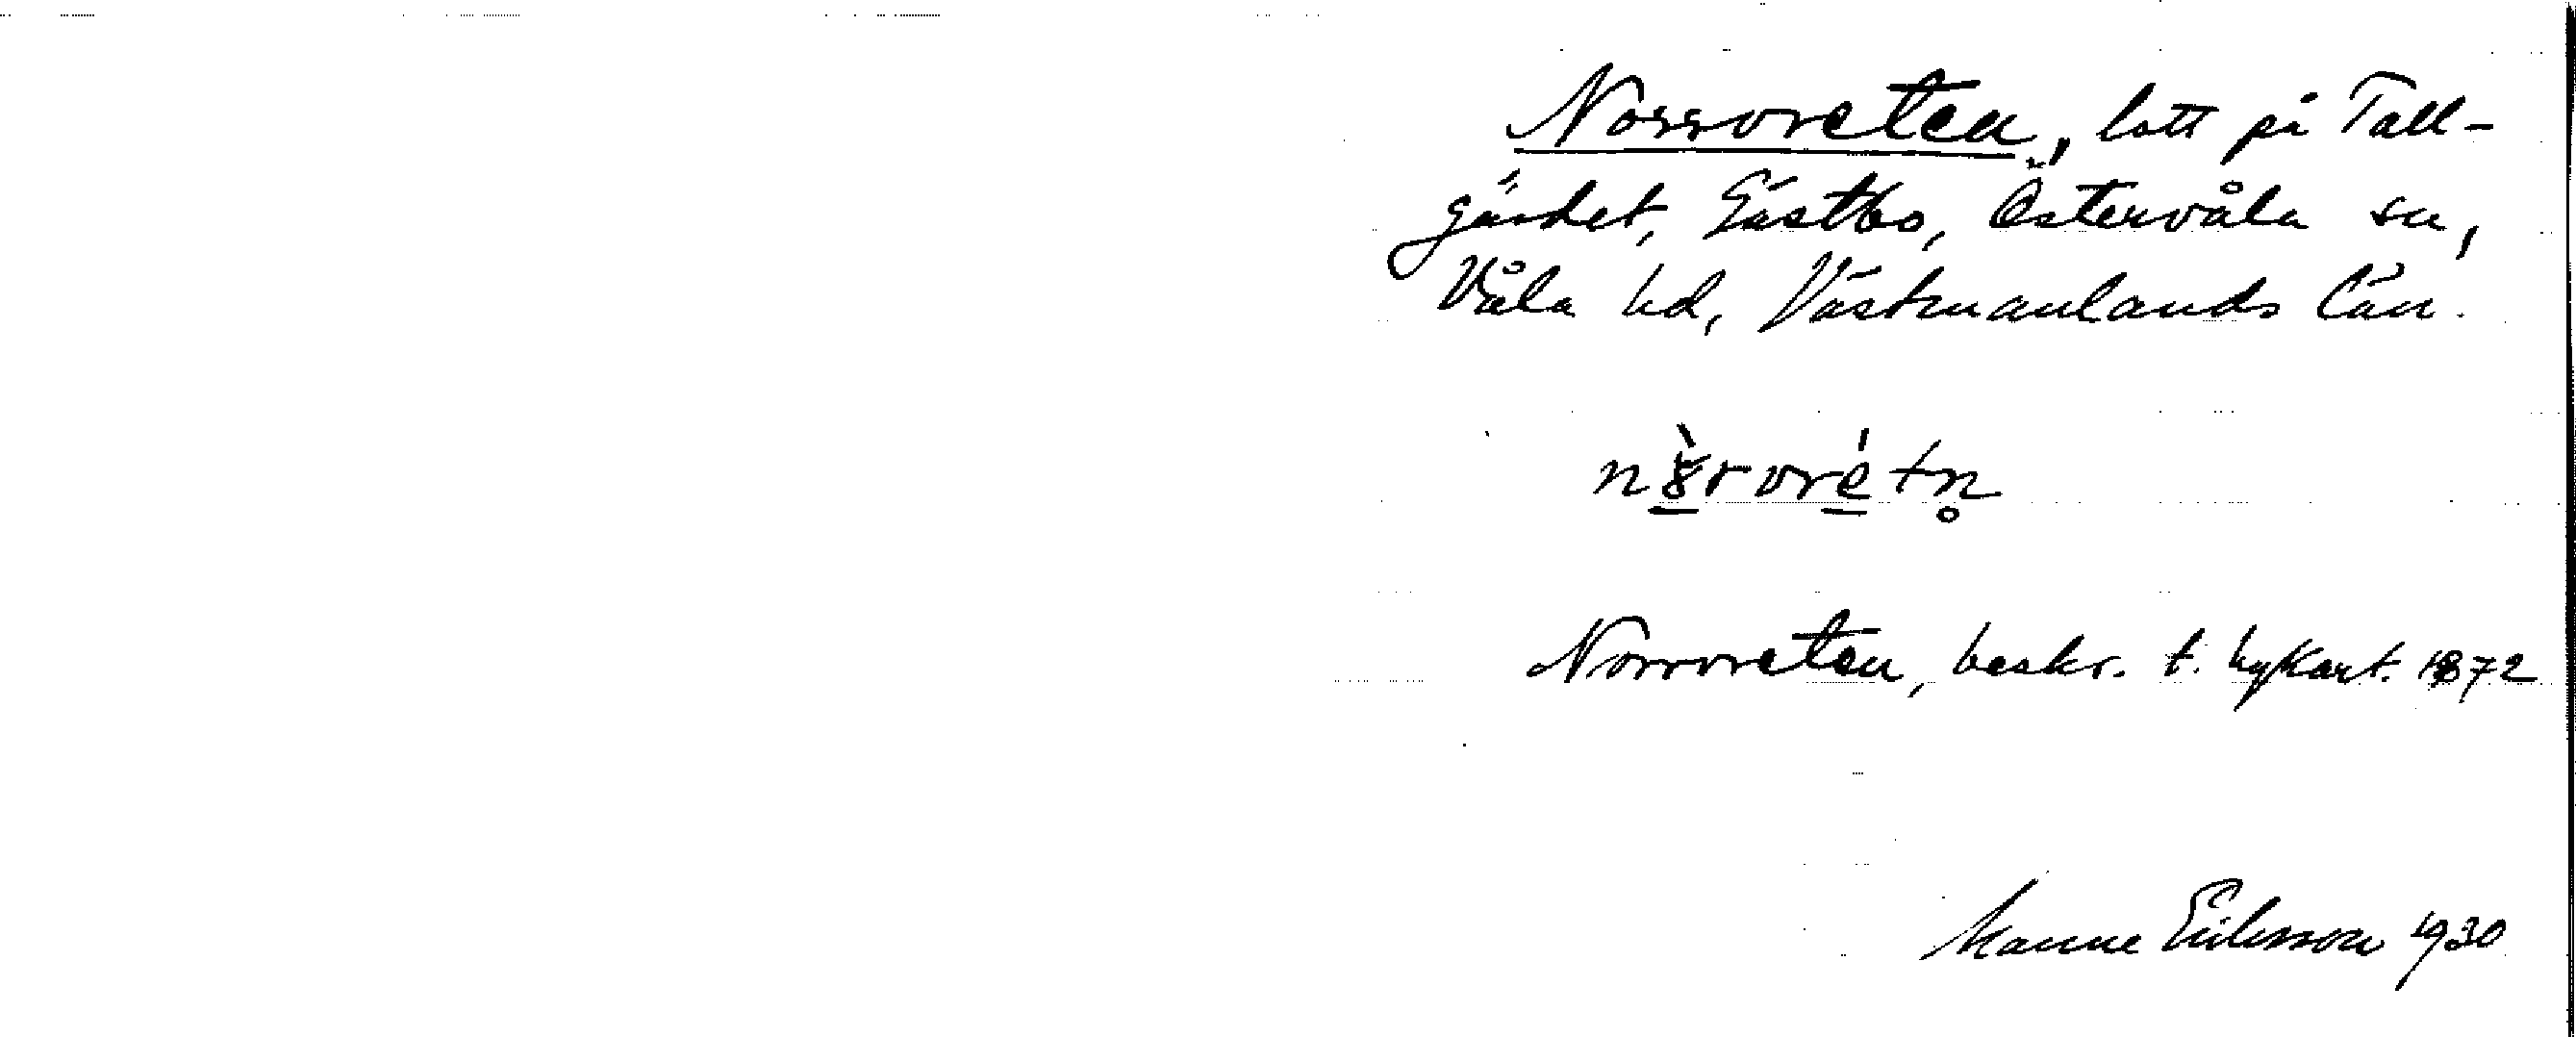 Norrvreten, lott på Tall-
gärdet, Gästbo, Östervåla sn,
Våla hd, Västmanlands län.
Norrvreten, beskr. t. hykart. 1872
Manne Eriksson 1930